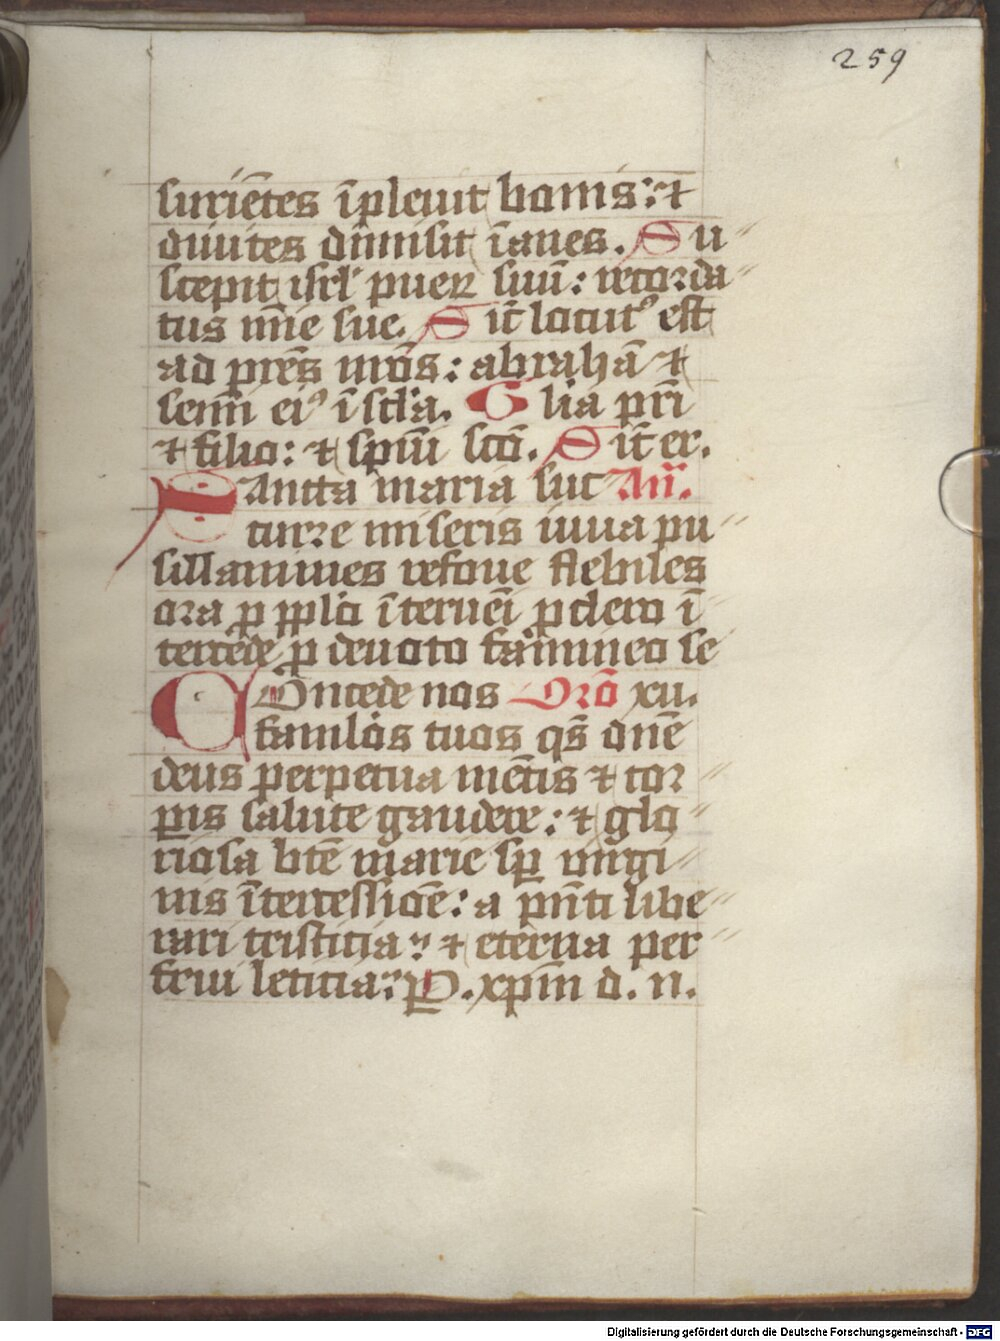 259
suriētes īpleuit bonis: et
diuites dimisit īanes. Su
scepit isrl' pueꝝ suū: recorda
tus mīe sue. Sic̄ locut⁹ est
ad pr̄es nr̄os: abrahā et
semīi ei⁹ ī scl'a. Glia pr̄i
et filio: et spiūi scō. Sic̄ er.
Sancta maria suc Añ.
curre miseris iuua pu
sillanimes refoue flebiles
ora ꝓ ppl'o īterueī ꝓ clero ī
tercede ꝓ deuoto famineo se
Concede nos Orō xu.
famulos tuos qs̄ dn̄e
deus perpetua mētis et cor
ꝑis salute gaudere: et glo
riosa btē marie sꝑ uirgi
nis ītercessiōe: a pn̄ti libe
rari tristicia: et eterna per
frui leticia: P. xp̄m d. n.
Digitalisierung gefördert durch die Deutsche Forschungsgemeinschaft - DFG